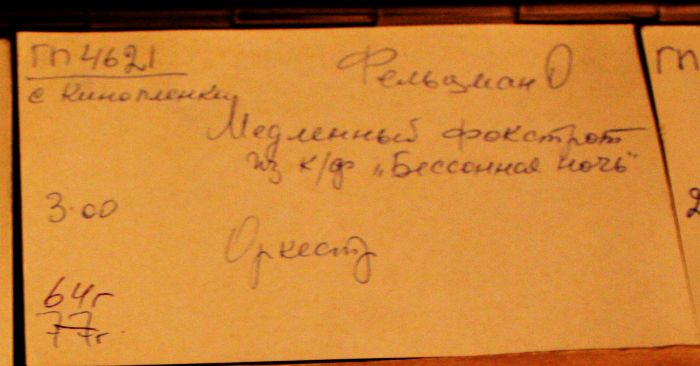 ГП 4621
с кинопленки
Фельцман О
Медленный фокстрот
из к/ф „Бессонная ночь"
3-00
Оркестр
64г
77г.
ГП
2